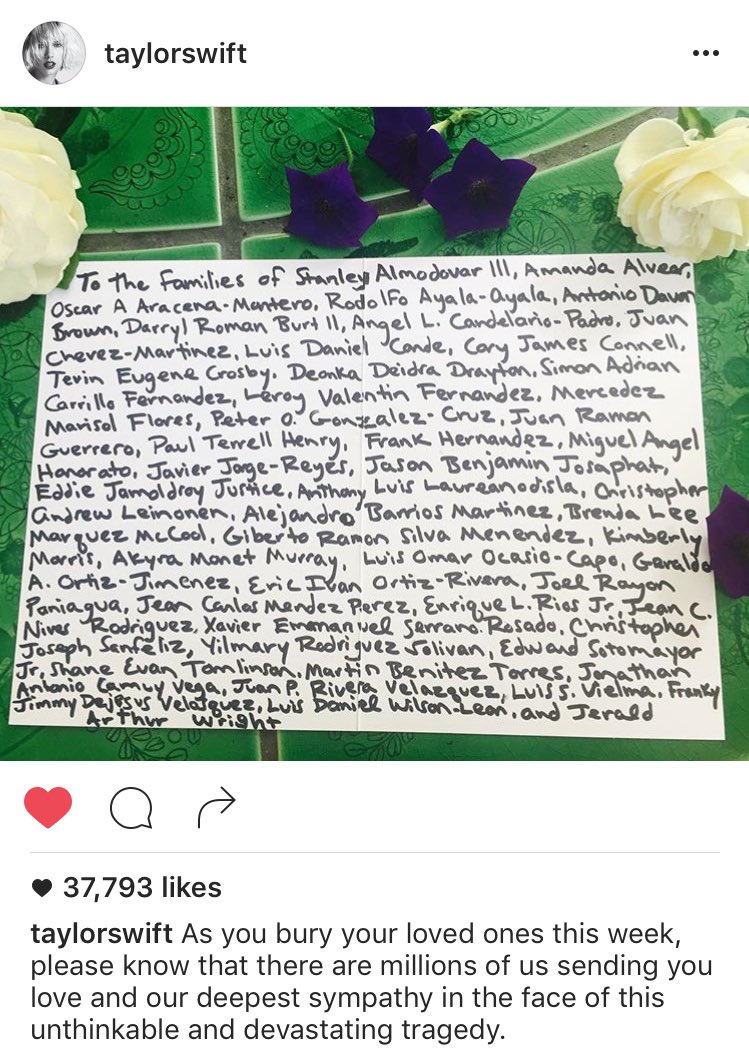 taylorswift
To the Families of Stanley Almodovar III, Amanda Alvear,
Oscar A Aracena-Montero, Rodolfo Ayala-Ayala, Antonio Davon
Brown, Darryl Roman Burt II, Angel L. Candelario-Padro, Juan
Chevez-Martinez, Luis Daniel Conde, Cory James Connell,
Tevin Eugene Crosby. Deonka Deidra Drayton, Simon Adrian
Carrillo Fernandez, Leroy Valentin Fernandez, Mercedez
Marisol Flores, Peter O. Gonzalez-Cruz, Juan Ramon
Guerrero, Paul Terrell Henry, Frank Hernandez, Miguel Angel
Honorato, Javier Jorge-Reyes, Jason Benjamin Josaphat,
Eddie Jamoldroy Justice, Anthony Luis Laureanodisla, Christopher
Andrew Leinonen, Alejandro Barrios Martinez, Brenda Lee
Marquez McCool, Gilberto Ramon Silva Menendez, Kimberly
Morris, Akyra Monet Murray, Luis Omar Ocasio-Capo, Geraldo
A. Ortiz-Jimenez, Eric Ivan Ortiz-Rivera, Joel Rayon
Paniagua, Jean Carlos Mendez Perez, Enrique L. Rios Jr, Jean C.
Nives Rodriguez, Xavier Emmanuel Serrano Rosado, Christopher
Joseph Sanfeliz, Yilmary Rodriguez Solivan, Edward Sotomayor
Jr, Shane Evan Tomlinson, Martin Benitez Torres, Jonathan
Antonio Camuy Vega, Juan P. Rivera Velazquez, Luis S. Vielma, Franky
Jimmy Dejesus Velazquez, Luis Daniel Wilson-Leon, and Jerald
Arthur Wright
37,793 likes
taylorswift As you bury your loved ones this week,
please know that there are millions of us sending you
love and our deepest sympathy in the face of this
unthinkable and devastating tragedy.